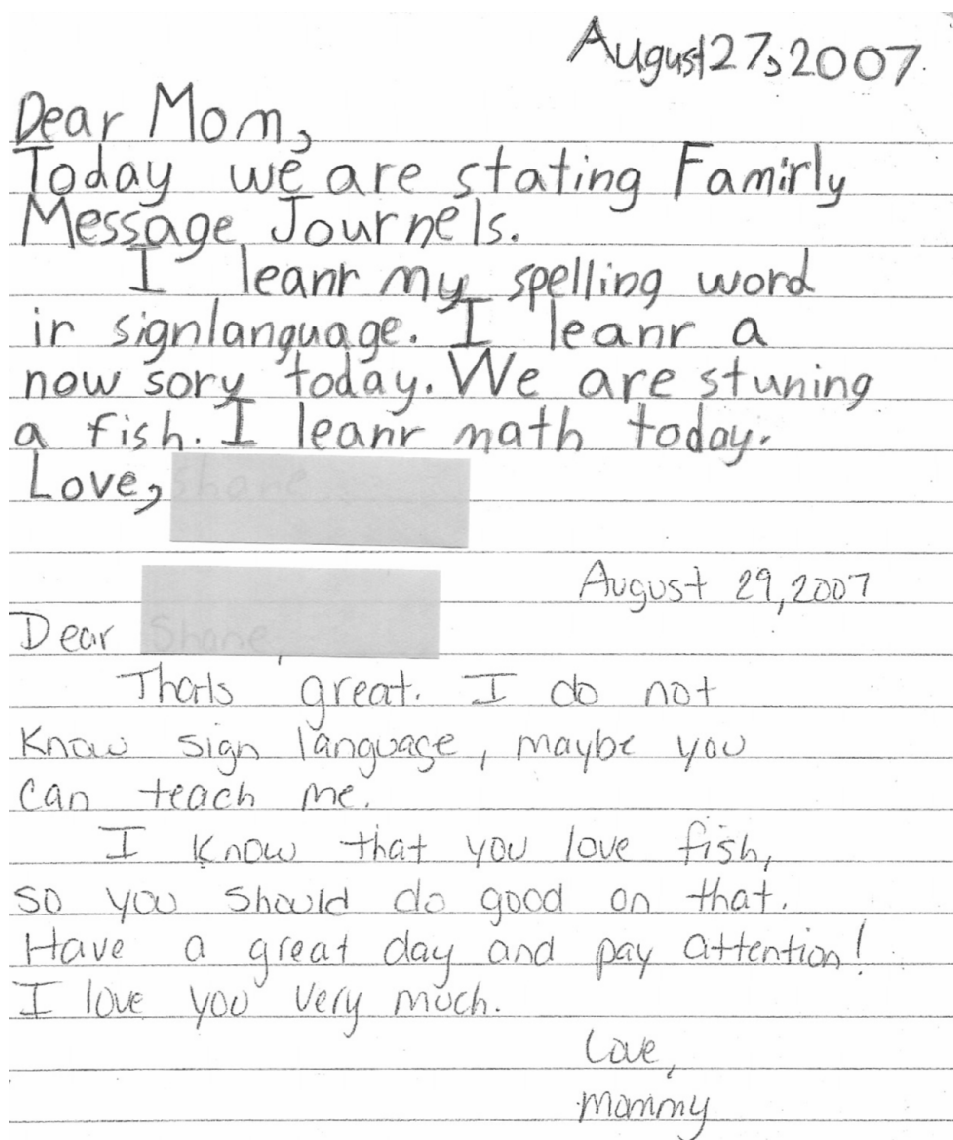 August 27, 2007.
Dear Mom,
Today we are stating Famirly
Message Journels.
I leanr my spelling word
ir signlanguage. I leanr a
now sory today. We are stuning
a fish. I leanr math today.
Love,
August 29, 2007
Dear
Thats great. I do not
know sign language, maybe you
can teach me.
I know that you love fish,
so you should do good on that.
Have a great day and pay attention!
I love you very much.
Love,
Mommy